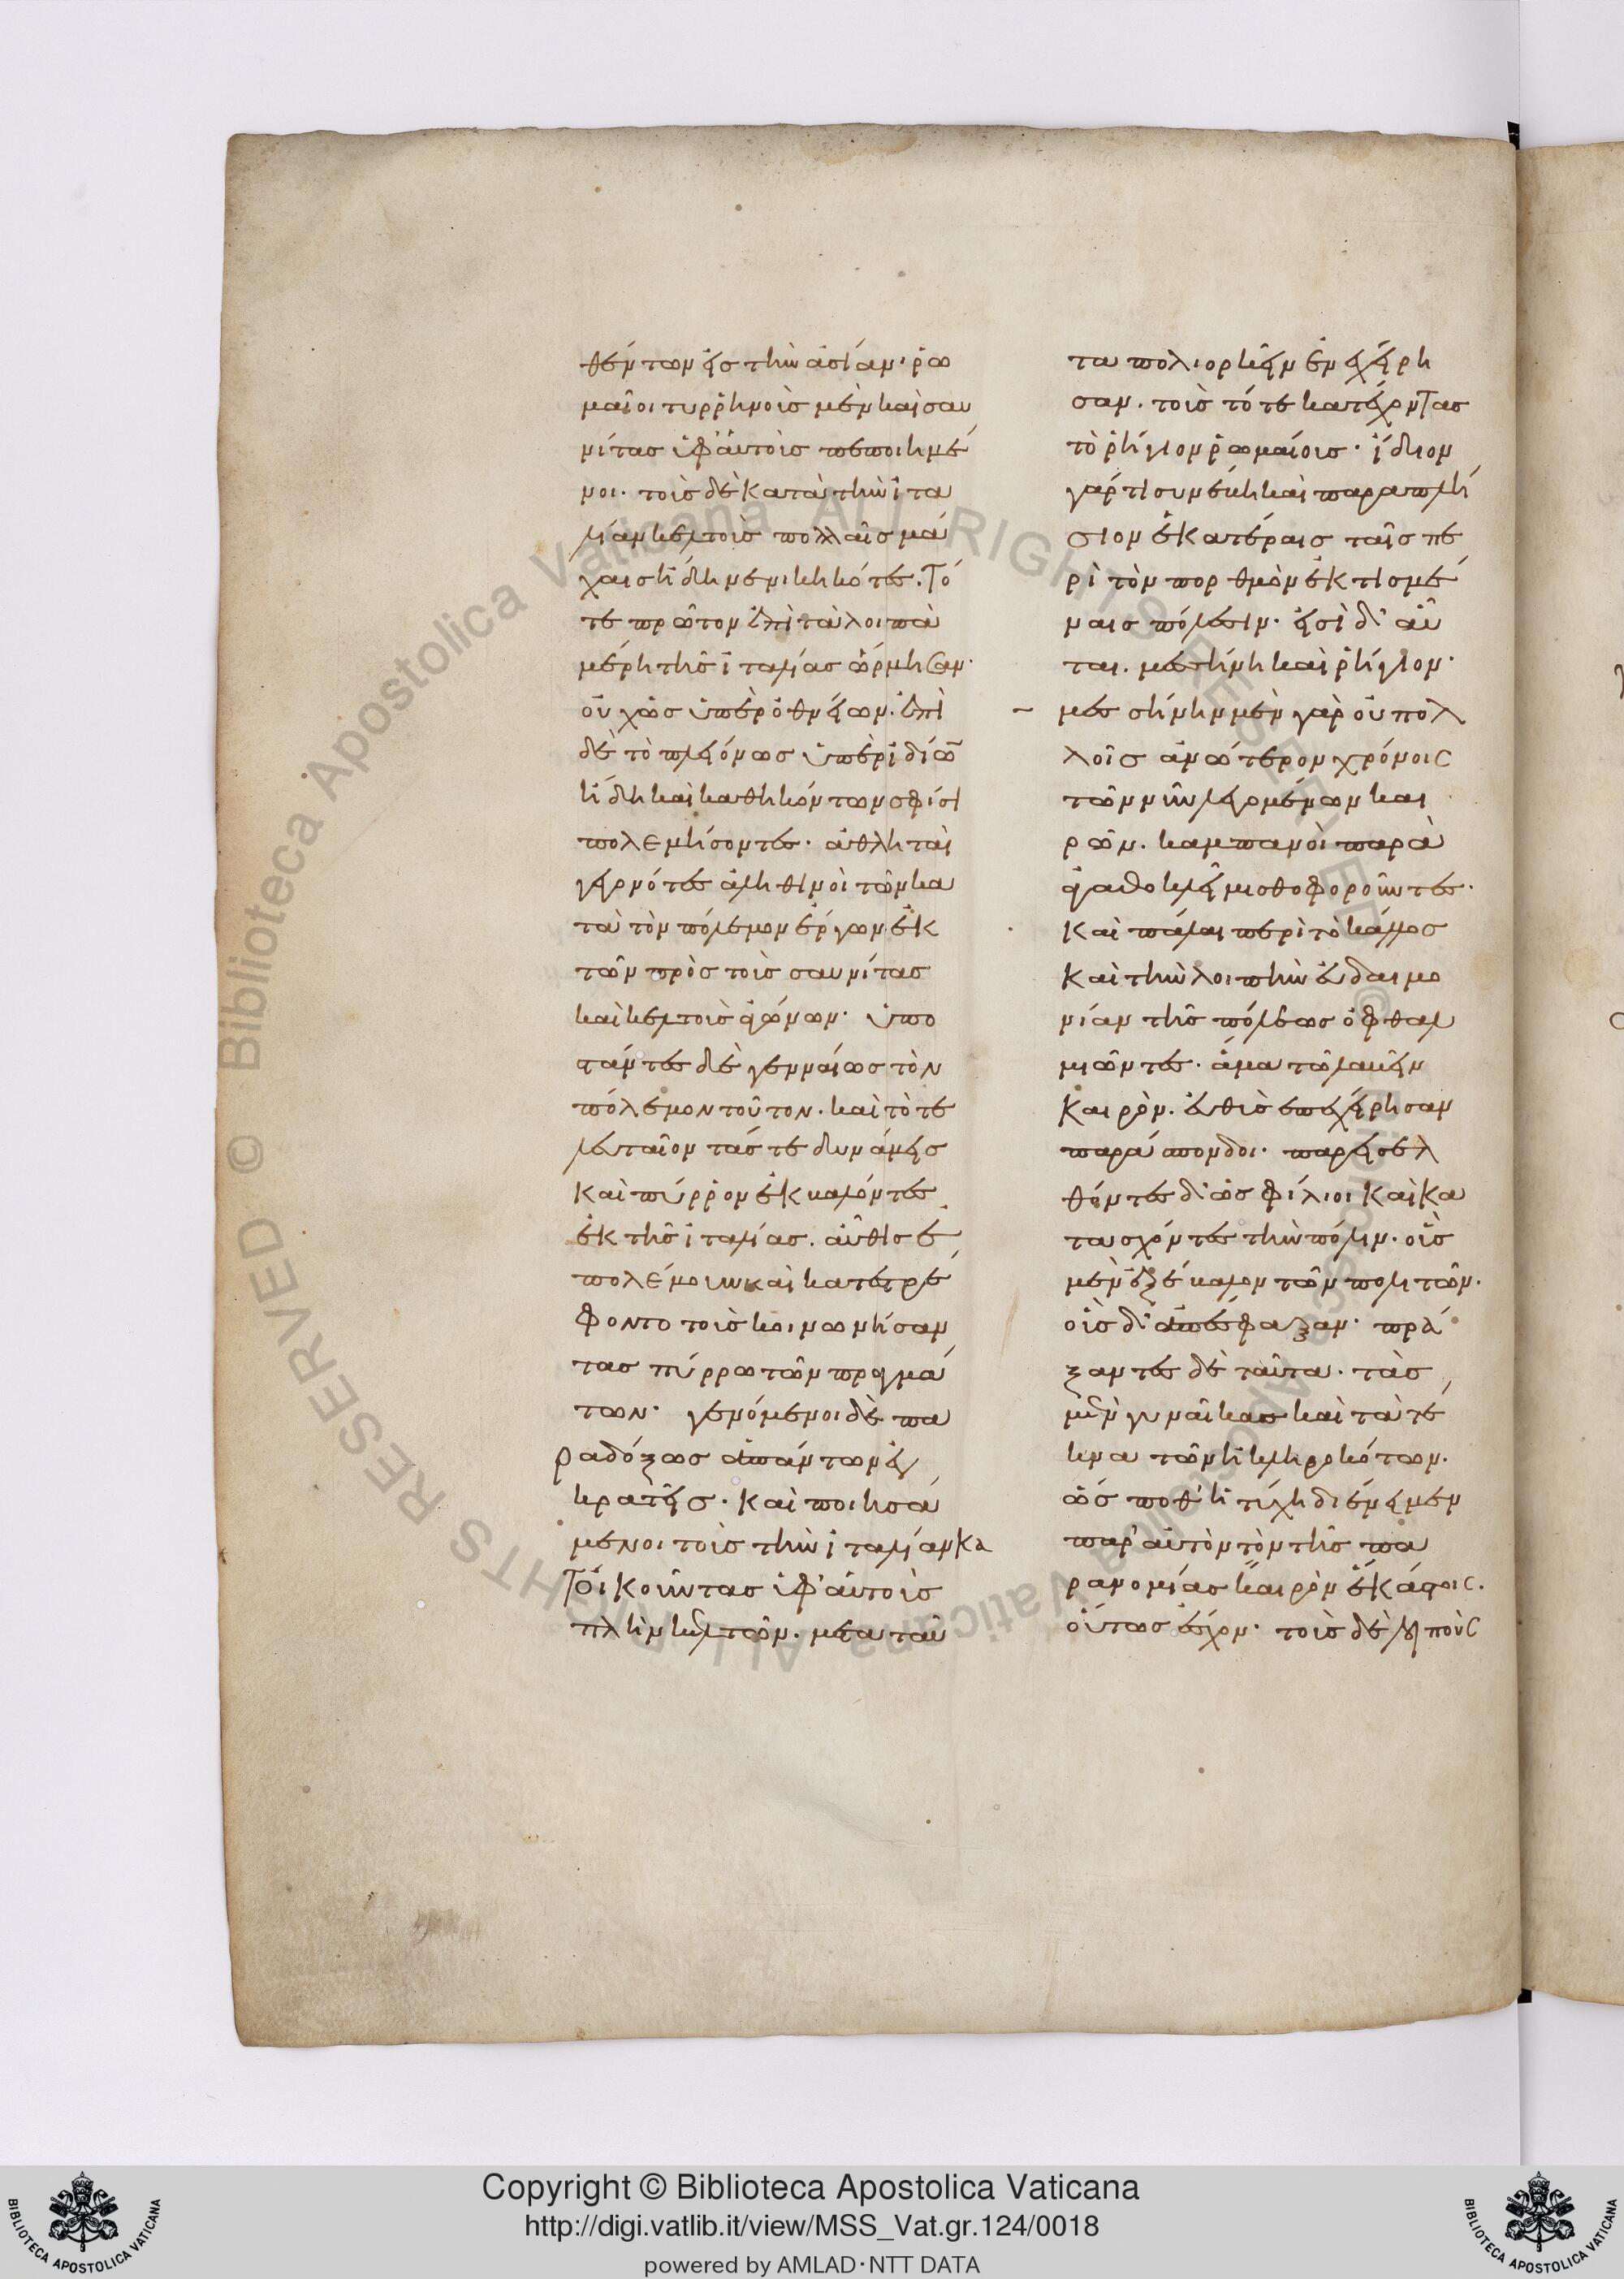 θέντων εἰς τὴν ἀσίαν· ῥω
μαῖοι τυρρηνοὺς μὲν καὶ σαυ
νίτας ὑφ' αὑτοὺς πεποιημέ
νοι. τοὺς δὲ κατὰ τὴν ἰτα
λίαν κελτοὺς πολλαῖς μά
χαις ἤδη νενικηκότες. τό
τε πρῶτον ἐπὶ τὰ λοιπὰ
μέρη τῆς ἰταλίας ὥρμησαν·
οὐχ ὡς ὑπὲρ ὀθνείων. ἐπὶ
δὲ τὸ πλεῖον ὡς ὑπὲρ ἰδίων
ἤδη καὶ καθηκόντων σφίσι
πολεμήσοντες· ἀθληταὶ
γεγονότες ἀληθινοὶ τῶν κα
τὰ τὸν πόλεμον ἔργων ἐκ
τῶν πρὸς τοὺς σαυνίτας
καὶ κελτοὺς ἀγώνων· ὑπο
στάντες δὲ γενναίως τὸν
πόλεμον τοῦτον. καὶ τὸ τε
λευταῖον τάς τε δυνάμεις
καὶ πύρρον ἐκβαλόντες
ἐκ τῆς ἰταλίας. αὖθις ἐ
πολέμουν καὶ κατεστρέ
φοντο τοὺς κοινωνήσαν
τας πύρρω τῶν πραγμά
των· γενόμενοι δὲ πα
ραδόξως ἁπάντων ἐγ
κρατεῖς. καὶ ποιησά
μενοι τοὺς τὴν ἰταλίαν κα
τοικοῦντας ὑφ' αὑτοὺς
πλὴν κελτῶν. μετὰ ταῦ
τα πολιορκεῖν ἐνεχείρη
σαν. τοὺς τότε κατέχοντας
τὸ ῥήγιον ῥωμαίους· ἴδιον
γάρ τι συνέβη καὶ παραπλή
σιον ἑκατέραις ταῖς πε
ρὶ τὸν πορθμὸν ἐκτισμέ
ναις πόλεσιν. εἰσὶ δ' αὗ
ται. μεσσήνη καὶ ῥήγιον·
μεσσήνην μὲν γὰρ οὐ πολ
λοῖς ἀνώτερον χρόνοις
τῶν νῦν λεγομένων και
ρῶν. καμπανοὶ παρὰ
ἀγαθοκλεῖ μισθοφοροῦντες.
καὶ πάλαι περὶ τὸ κάλλος
καὶ τὴν λοιπὴν εὐδαιμο
νίαν τῆς πόλεως ὀφθαλ
μιῶντες. ἅμα τῶ λαβεῖν
καιρόν. εὐθὺς ἐπεχείρησαν
παράσπονδοι. παρεισελ
θόντες δ' ὡς φίλιοι καὶ κα
τασχόντες τὴν πόλιν. οὓς
μὲν ἐξέβαλον τῶν πολιτῶν.
οὓς δ' ἀπέσφαξαν. πρά
ξαντες δὲ ταῦτα. τὰς
μὲν γυναῖκας καὶ τὰ τέ
κνα τῶν ἠκληρηκότων.
ὥς ποθ' ἡ τύχη διένειμεν
παρ' αὐτὸν τὸν τῆς πα
ρανομίας καιρὸν ἑκάστοις.
οὕτως ἔσχον. τοὺς δὲ λοιποὺς